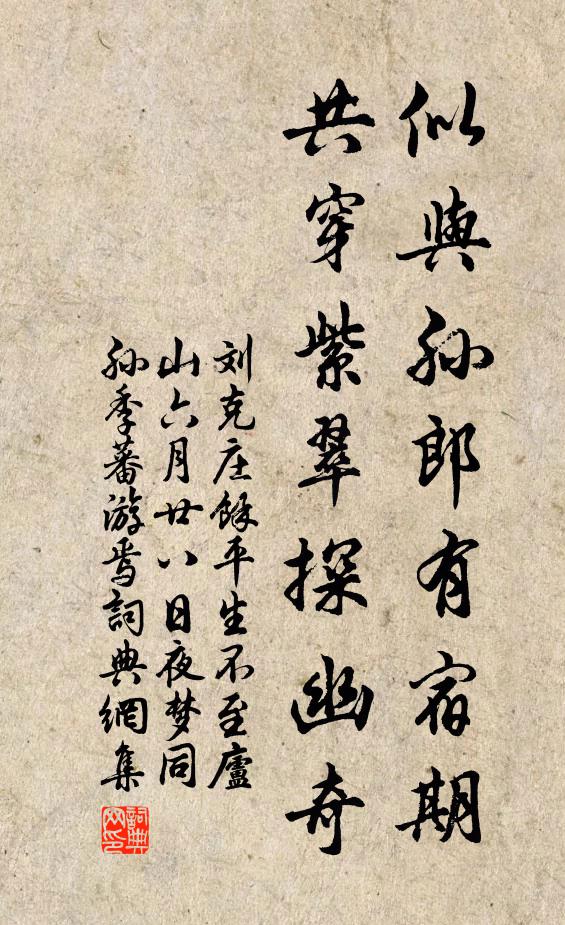 似與孫郎有宿期
共穿紫翠探幽奇
刘克庄餘平生不至廬
山六月廿八日夜梦同
孙季蕃游焉詞典網集
詞典
网印